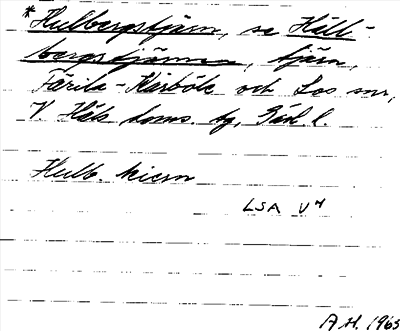 *Hulbergstjärn, se Häll-
bergstjärnen, tjärn,
Färila-Kårböle och Los snr,
V. Häls. doms. tg, Gävl. l.
Hulb. kiern
LSA V4
A.H. 1963